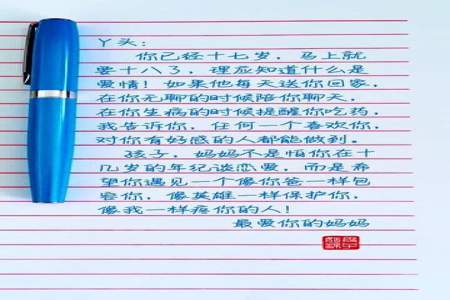 丫头:
你已经十七岁,马上就
要十八了,理应知道什么是
爱情!如果他每天送你回家,
在你无聊的时候陪你聊天,
在你生病的时候提醒你吃药,
我告诉你,任何一个喜欢你,
对你有好感的人都能做到。
孩子,妈妈不是怕你在十
几岁的年纪谈恋爱,而是希
望你遇见一个像你爸一样包
容你,像英雄一样保护你,
像我一样疼你的人!
最爱你的妈妈